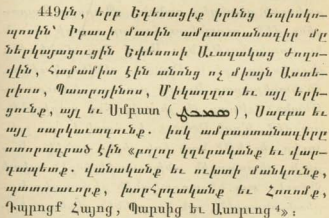 449ին, երբ Եդեսացիք իրենց եպիսկո-
պոսին՝ Իբասի մասին ամբաստանագիր մը
ներկայացուցին Եփեսոսի Աւազակաց Ժողո-
վին, Համամիտ էին անոնց ոչ միայն Աստե-
րիոս, Պատրոյինոս, Միկաղղոս եւ այլ երի-
ցունք, այլ եւ Սմբատ ( ), Սաբբա եւ
այլ սարկաւագունք. իսկ ամբաստանագիրը
ստորագրած էին «բոլոր կղերականք եւ վար-
դապետք. վանականք եւ ուխտի մանկունք,
պատուաւորք, խորհրդականք եւ Հռոոմք,
Դպրոցք Հայոց, Պարսից եւ Ասորւոց⁴»։